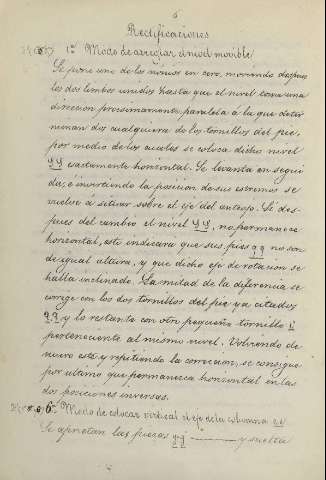 6
Rectificaciones
1ª Modo de arreglar el nivel movible
Se pone uno de los nonios en cero, moviendo despues
los dos limbos unidos hasta que el nivel tome una
direccion proximamente paralela á la que deter
minan dos cualquiera de los tornillos del pie,
por medio de los cuales se coloca dicho nivel
yy exactamente horizontal. Se levanta en segui
da, é invirtiendo la posicion de sus estremos se
vuelve a situar sobre el eje del anteojo. Si des-
pues del cambio el nivel yy, no permanece
horizontal, esto indicará que sus pies qq no son
de igual altura, y que dicho eje de rotacion se
halla inclinado. La mitad de la diferencia se
corrige con los dos tornillos del pie ya citados
y lo restante con otro pequeño tornillo i
perteneciente al mismo nivel. Volviendo de
nuevo este y repitiendo la correccion, se consigue
por ultimo que permanezca horizontal en las
dos posiciones inversas.
6ª Modo de colocar vertical el eje de la columna
Se aprietan las piezas y suelta